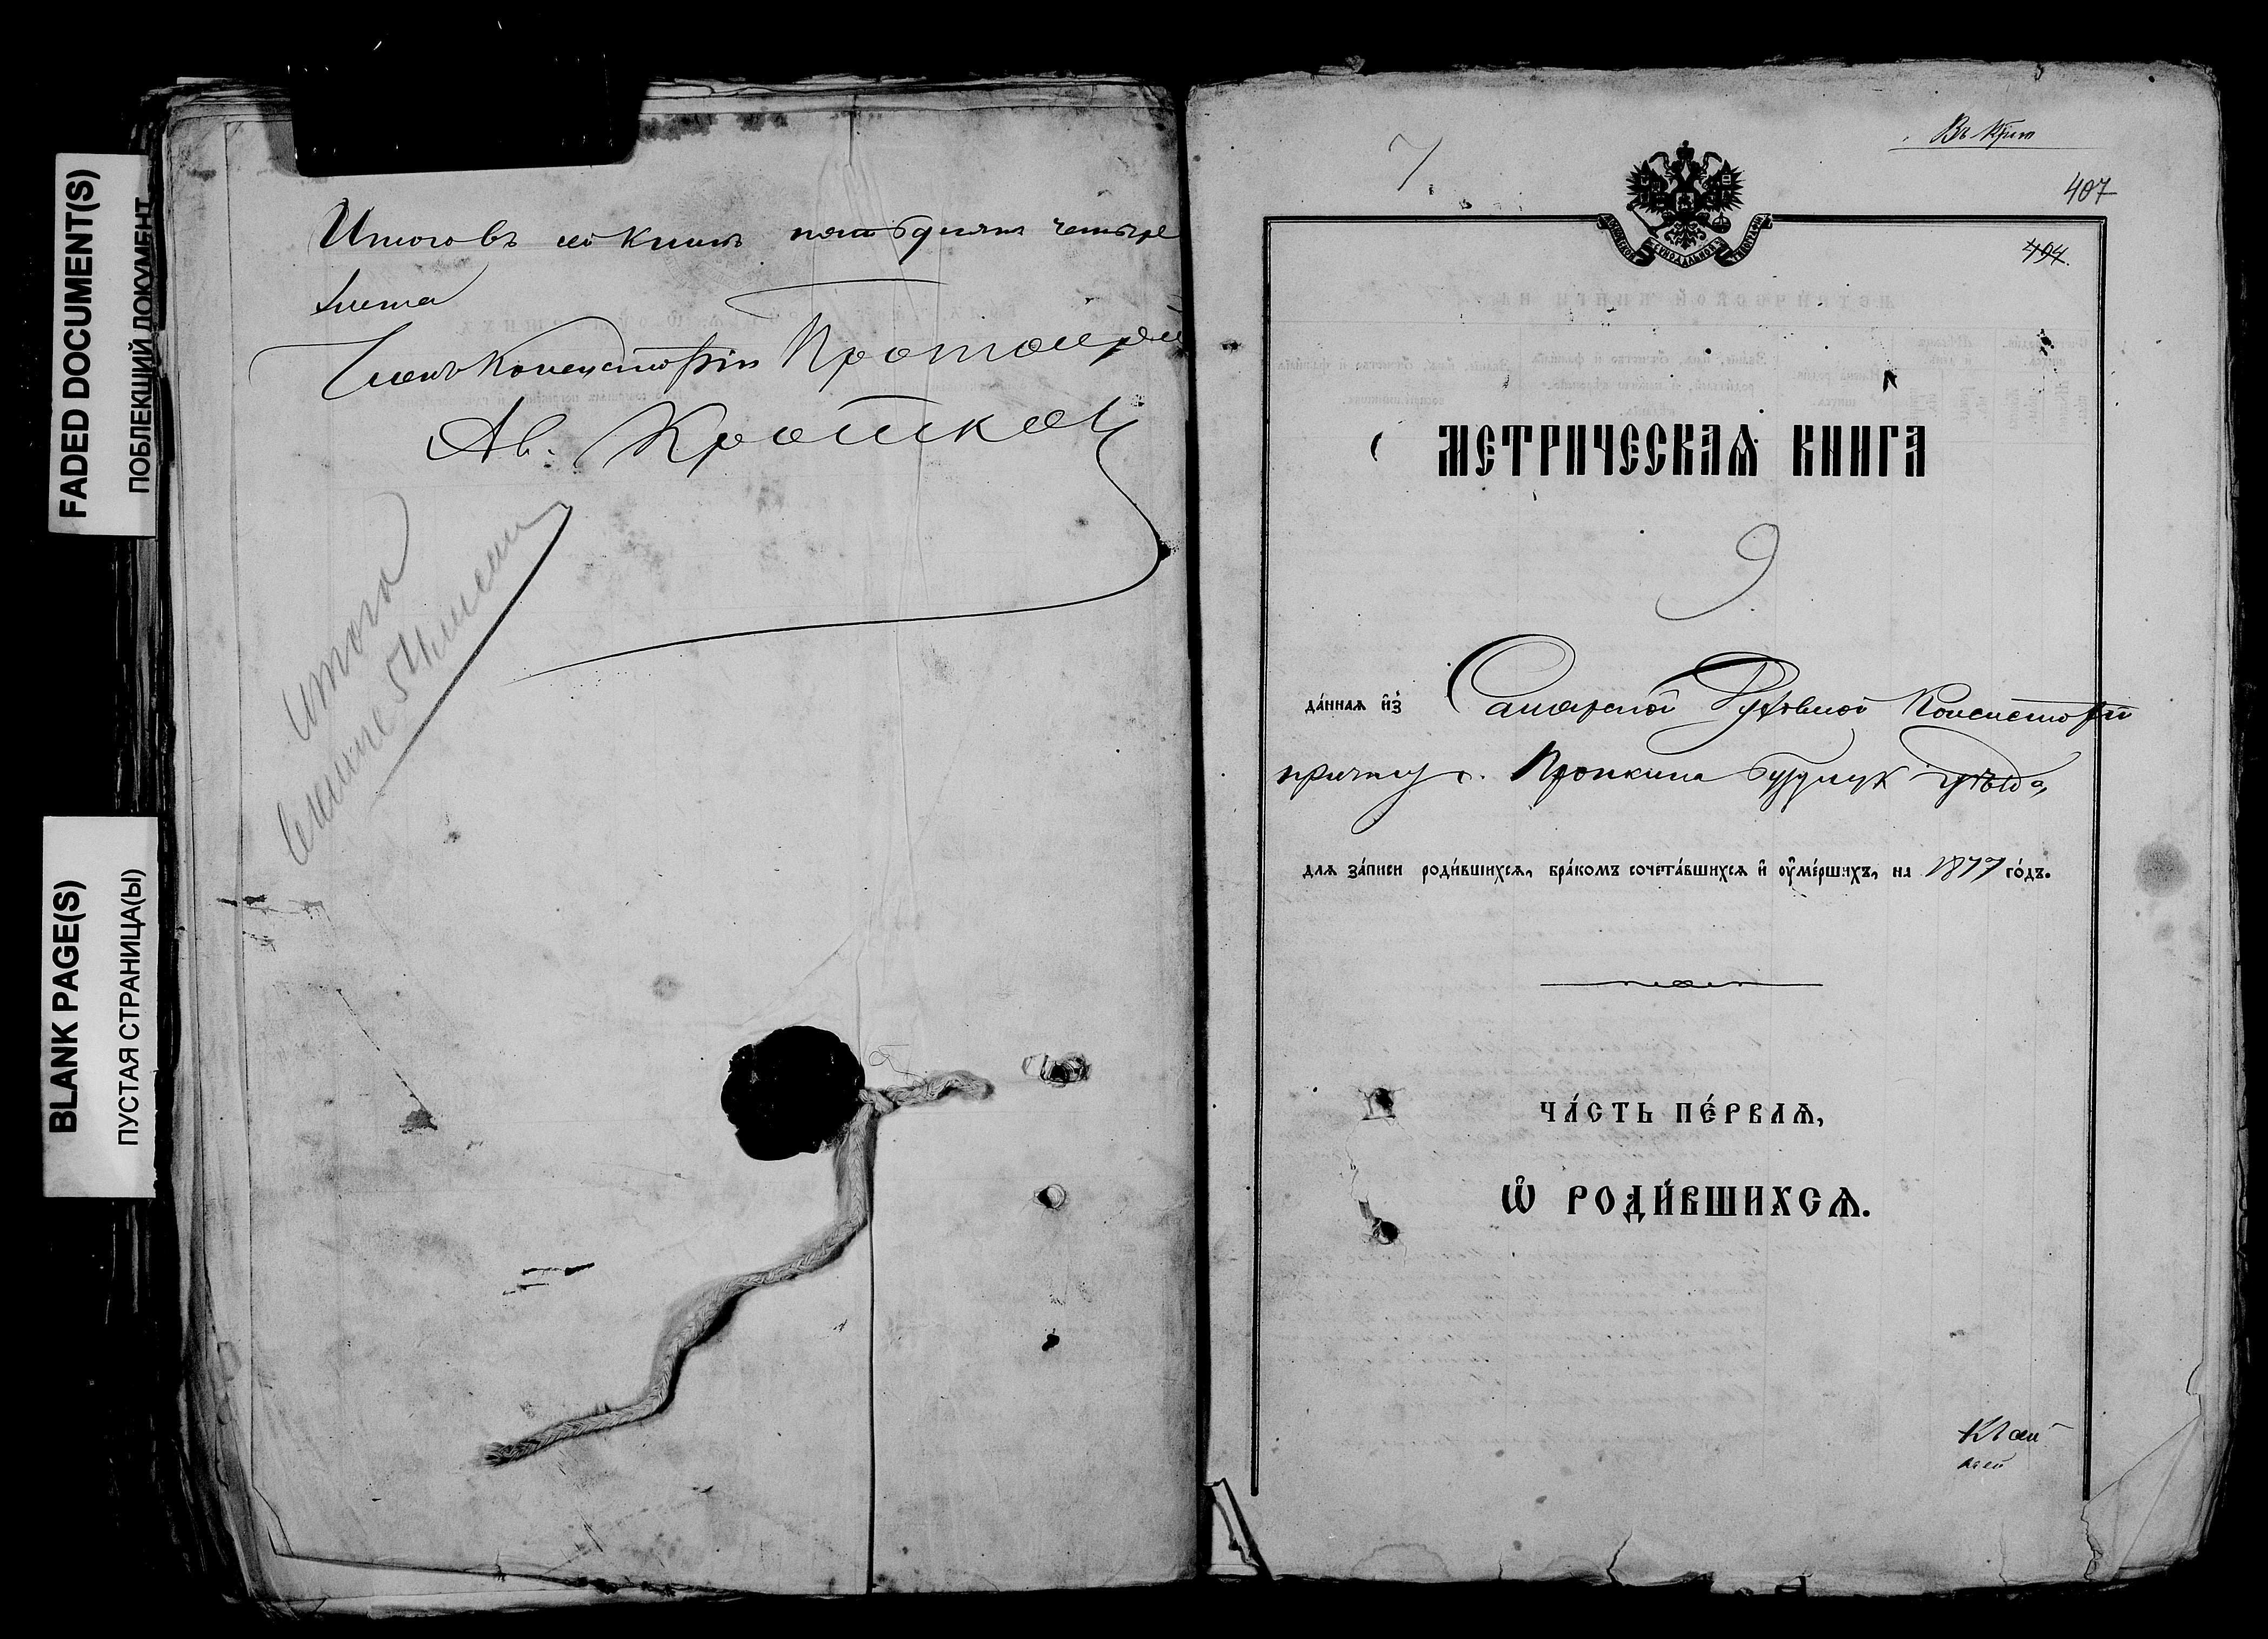 FADED DOCUMENT(S)
ПОБЛЕКШИЙ ДОКУМЕНТ
BLANK PAGE(S)
ПУСТАЯ СТРАНИЦА(Ы)
Итого въ сей книгѣ пятьдесятъ четыре
листа
Членъ Консисторіи Протоіерей
Ав. Кротков
Итого
54 листа
7
407
494.
МЕТРИЧЕСКАѦ КНИГА
9
да́ннаѧ и҆з̾ Самарской Духовной Консисторіи
причту с. Пронкина Бузулук уѣзда,
длѧ за́писи роди́вшихсѧ, бра́комъ сочета́вшихсѧ и҆ ᲂу҆ме́ршихъ, на 1877 го́дъ.
ЧА́СТЬ ПЕ́РВАѦ,
Ѡ҆ РОДИ́ВШИХСѦ.